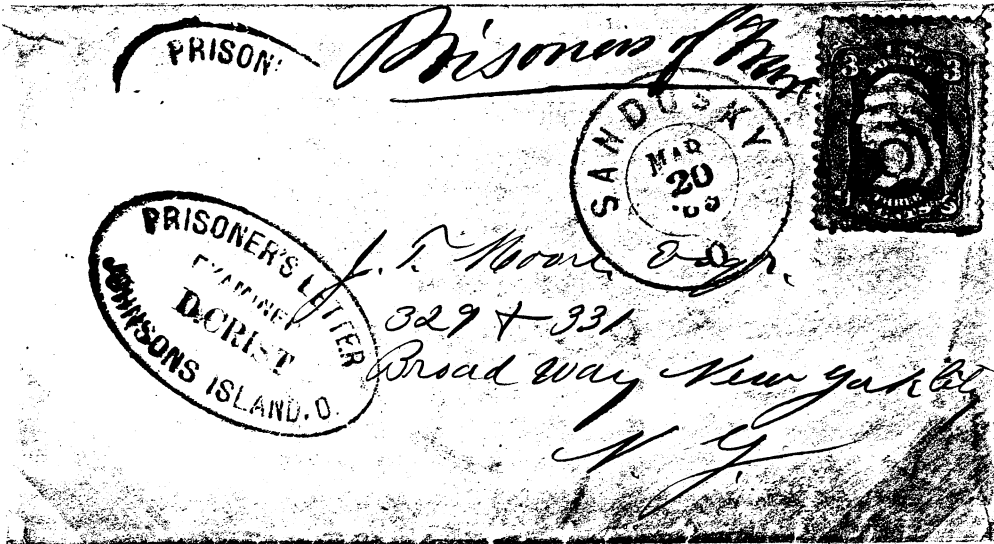 PRISON
Prisoners of War
SANDUSKY
MAR
20
O.
3 3
PRISONER'S LETTER
EXAMINED
D.CRIST
JOHNSONS ISLAND. O.
J. T. Moore, Esqr.
329 & 331
Broad way New York City
N. Y.